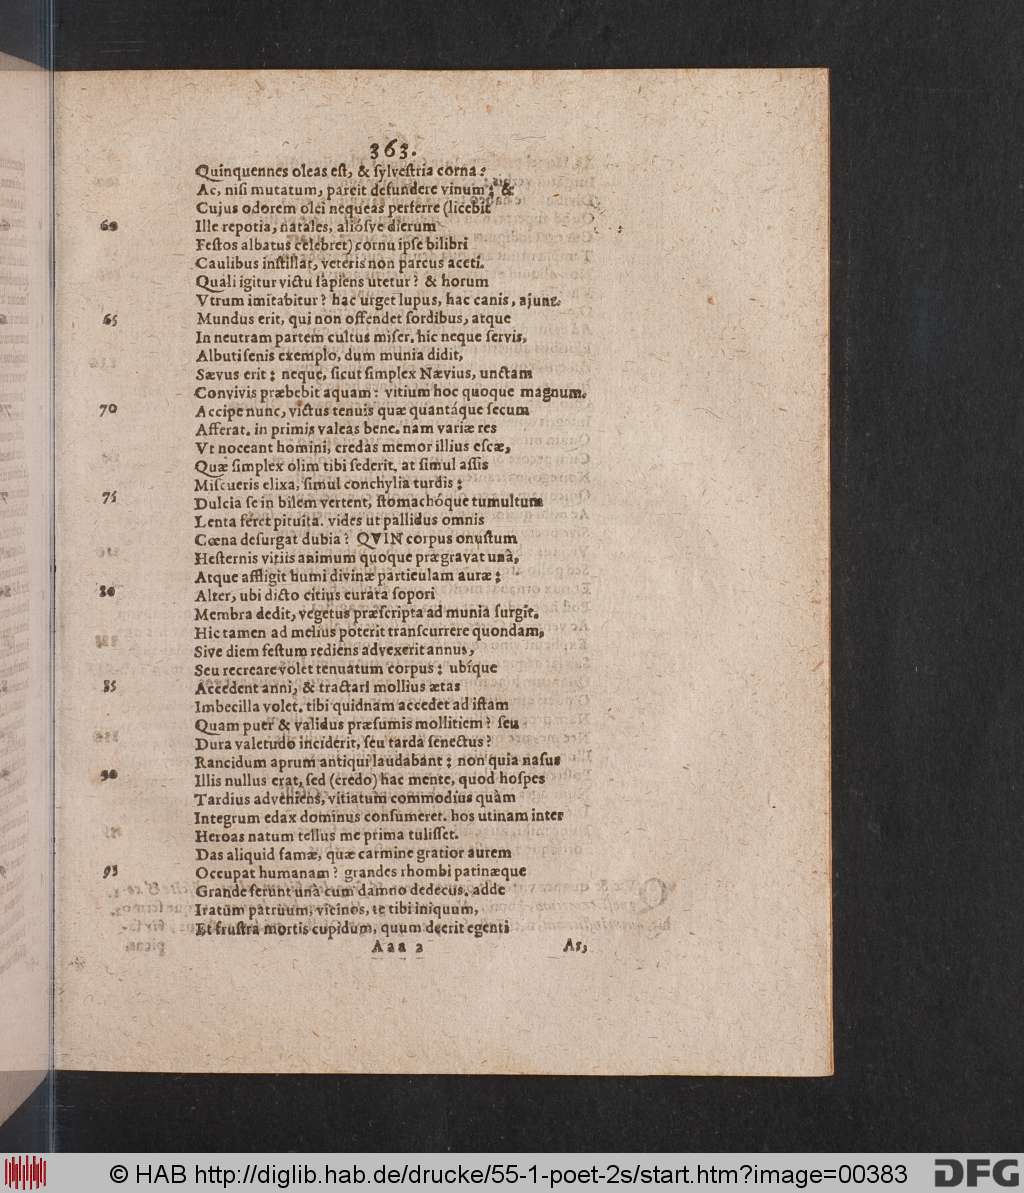 363.
Quinquennes oleas eſt, & ſylveſtria corna:
Ac, niſi mutatum, parcit defundere vinum; &
Cujus odorem olei nequeas perferre (licebit
60 Ille repotia, natales, aliósve dierum
Feſtos albatus celebret) cornu ipſe bilibri
Caulibus inſtillat, veteris non parcus aceti.
Quali igitur victu ſapiens utetur? & horum
Vtrum imitabitur? hac urget lupus, hac canis, ajunt.
65 Mundus erit, qui non offendet ſordibus, atque
In neutram partem cultus miſer. hic neque ſervis,
Albuti ſenis exemplo, dum munia didit,
Sævus erit; neque, ſicut ſimplex Nævius, unctam
Convivis præbebit aquam: vitium hoc quoque magnum.
70 Accipe nunc, victus tenuis quæ quantáque ſecum
Afferat. in primis valeas bene. nam variæ res
Vt noceant homini, credas memor illius eſcæ,
Quæ ſimplex olim tibi ſederit. at ſimul aſſis
Miſcueris elixa, ſimul conchylia turdis;
75 Dulcia ſe in bilem vertent, ſtomachóque tumultum
Lenta feret pituita. vides ut pallidus omnis
Cœna deſurgat dubia? QVIN corpus onuſtum
Heſternis vitiis animum quoque prægravat unà,
Atque affligit humi divinæ particulam auræ;
80 Alter, ubi dicto citius curata ſopori
Membra dedit, vegetus præſcripta ad munia ſurgit.
Hic tamen ad melius poterit tranſcurrere quondam,
Sive diem feſtum rediens advexerit annus,
Seu recreare volet tenuatum corpus; ubíque
85 Accedent anni, & tractari mollius ætas
Imbecilla volet. tibi quidnam accedet ad iſtam
Quam puer & validus præſumis mollitiem? ſeu
Dura valetudo inciderit, ſeu tarda ſenectus?
Rancidum aprum antiqui laudabant; non quia naſus
90 Illis nullus erat, ſed (credo) hac mente, quod hoſpes
Tardius adveniens, vitiatum commodius quàm
Integrum edax dominus conſumeret. hos utinam inter
Heroas natum tellus me prima tuliſſet.
Das aliquid famæ, quæ carmine gratior aurem
95 Occupat humanam? grandes rhombi patinæque
Grande ferunt unà cum damno dedecus. adde
Iratum patruum, vicinos, te tibi iniquum,
Et fruſtra mortis cupidum, quum deerit egenti
Aaa 2 As,
© HAB http://diglib.hab.de/drucke/55-1-poet-2s/start.htm?image=00383 DFG